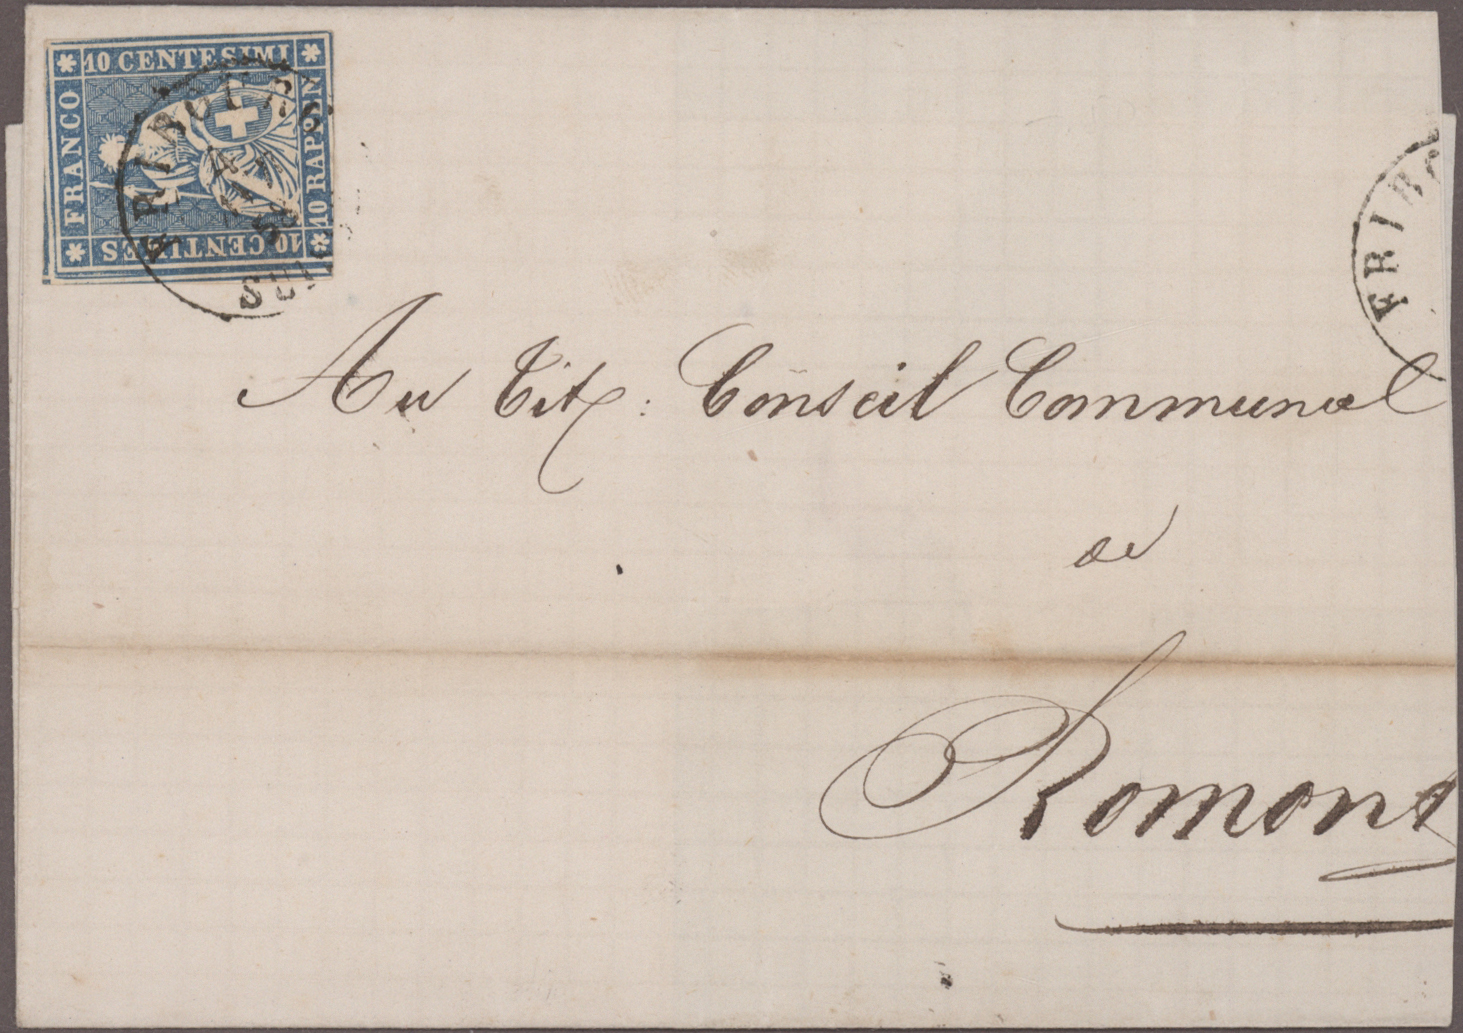 10 CENTESIMI
FRANCO
10 RAPPEN
10 CENTIMES
FRIBOURG
4
58
FRIBO
Au Tit: Conseil Communal
de
Romont